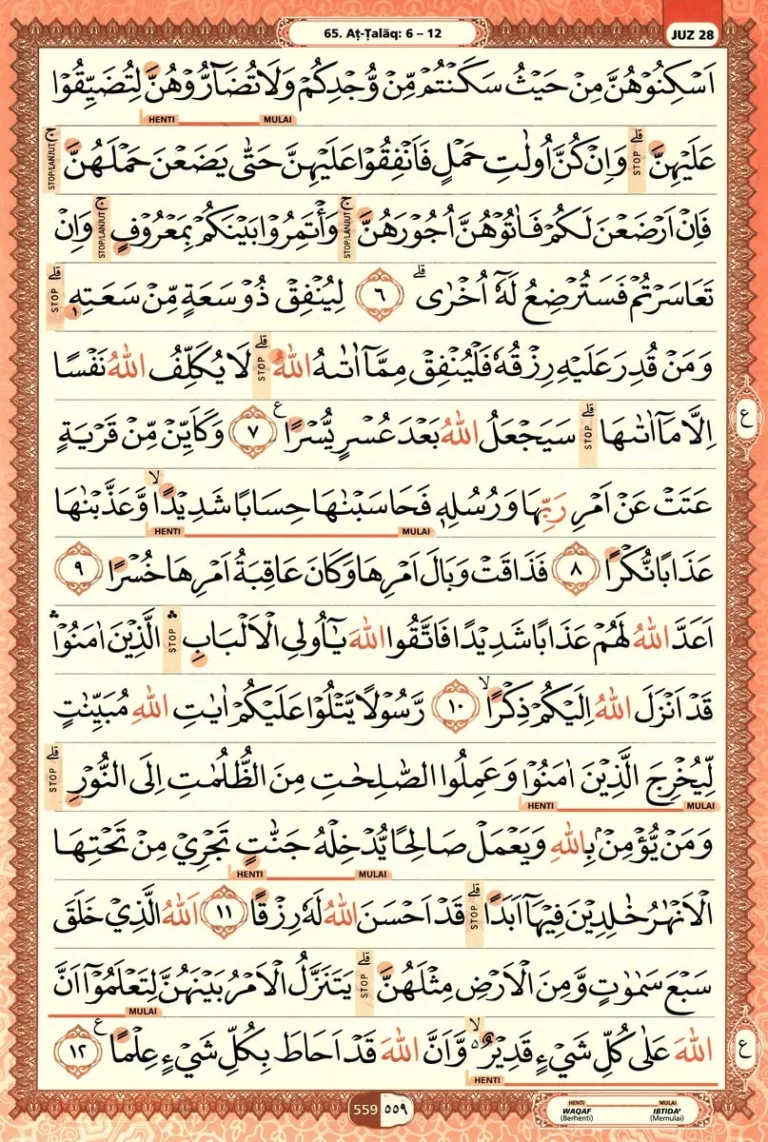 65. Aṭ-Ṭalāq: 6 – 12
JUZ 28
اَسْكِنُوْهُنَّ مِنْ حَيْثُ سَكَنْتُمْ مِّنْ وُّجْدِكُمْ وَلَا تُضَاۤرُّوْهُنَّ لِتُضَيِّقُوْا
HENTI MULAI
عَلَيْهِنَّۗ STOP وَاِنْ كُنَّ اُولٰتِ حَمْلٍ فَاَنْفِقُوْا عَلَيْهِنَّ حَتّٰى يَضَعْنَ حَمْلَهُنَّۚ STOP/LANJUT
فَاِنْ اَرْضَعْنَ لَكُمْ فَاٰتُوْهُنَّ اُجُوْرَهُنَّۚ STOP/LANJUT وَأْتَمِرُوْا بَيْنَكُمْ بِمَعْرُوْفٍۚ STOP/LANJUT وَاِنْ
تَعَاسَرْتُمْ فَسَتُرْضِعُ لَهٗٓ اُخْرٰىۗ ٦ لِيُنْفِقْ ذُوْ سَعَةٍ مِّنْ سَعَتِهٖۗ STOP
وَمَنْ قُدِرَ عَلَيْهِ رِزْقُهٗ فَلْيُنْفِقْ مِمَّآ اٰتٰىهُ اللّٰهُۗ STOP لَا يُكَلِّفُ اللّٰهُ نَفْسًا
اِلَّا مَآ اٰتٰىهَاۗ STOP سَيَجْعَلُ اللّٰهُ بَعْدَ عُسْرٍ يُّسْرًا ࣖ ٧ وَكَاَيِّنْ مِّنْ قَرْيَةٍ
ع
عَتَتْ عَنْ اَمْرِ رَبِّهَا وَرُسُلِهٖ فَحَاسَبْنٰهَا حِسَابًا شَدِيْدًاۙ وَّعَذَّبْنٰهَا
HENTI MULAI
عَذَابًا نُّكْرًا ٨ فَذَاقَتْ وَبَالَ اَمْرِهَا وَكَانَ عَاقِبَةُ اَمْرِهَا خُسْرًا ٩
اَعَدَّ اللّٰهُ لَهُمْ عَذَابًا شَدِيْدًا فَاتَّقُوا اللّٰهَ يٰٓاُولِى الْاَلْبَابِۛ STOP الَّذِيْنَ اٰمَنُوْاۛ
قَدْ اَنْزَلَ اللّٰهُ اِلَيْكُمْ ذِكْرًاۙ ١٠ رَّسُوْلًا يَّتْلُوْا عَلَيْكُمْ اٰيٰتِ اللّٰهِ مُبَيِّنٰتٍ
لِّيُخْرِجَ الَّذِيْنَ اٰمَنُوْا وَعَمِلُوا الصّٰلِحٰتِ مِنَ الظُّلُمٰتِ اِلَى النُّوْرِۗ STOP
HENTI MULAI
وَمَنْ يُّؤْمِنْۢ بِاللّٰهِ وَيَعْمَلْ صَالِحًا يُّدْخِلْهُ جَنّٰتٍ تَجْرِيْ مِنْ تَحْتِهَا
HENTI MULAI
الْاَنْهٰرُ خٰلِدِيْنَ فِيْهَآ اَبَدًاۗ STOP قَدْ اَحْسَنَ اللّٰهُ لَهٗ رِزْقًا ١١ اَللّٰهُ الَّذِيْ خَلَقَ
سَبْعَ سَمٰوٰتٍ وَّمِنَ الْاَرْضِ مِثْلَهُنَّۗ STOP يَتَنَزَّلُ الْاَمْرُ بَيْنَهُنَّ لِتَعْلَمُوْٓا اَنَّ
MULAI
اللّٰهَ عَلٰى كُلِّ شَيْءٍ قَدِيْرٌۙ وَّاَنَّ اللّٰهَ قَدْ اَحَاطَ بِكُلِّ شَيْءٍ عِلْمًا ࣖ ١٢
ع
HENTI
559 ٥٥٩
HENTI MULAI
WAQAF IBTIDA'
(Berhenti) (Memulai)